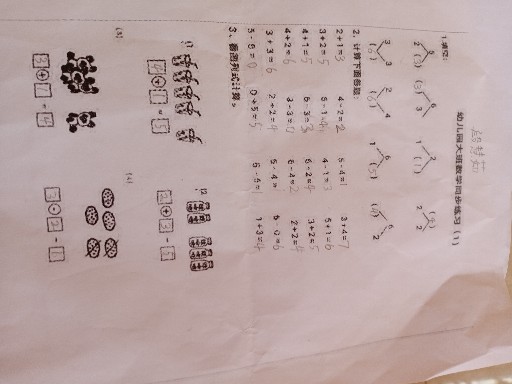 幼儿园大班数学同步练习（1）
1.填空：
5 6 2 (4)
2 (3) (3) 3 1 (1) 2 2
3 3 2 4 6 6
(6) (6) 1 (5) (4) 2
2、计算下面各题：
2+1=3 4-2=2 5-4=1 3+4=7
3+2=5 5-1=4 4-1=3 5+1=6
4+1=5 6-3=3 6-2=4 3+2=5
4+2=6 3-3=0 6-4=2 2+2=4
3+3=6 2+2=4 5-4=1 6-0=6
5-5=0 0+5=5 6-5=1 1+3=4
3、看图列式计算。
4+1=5 2+3=5
(3) (4)
3+1=4